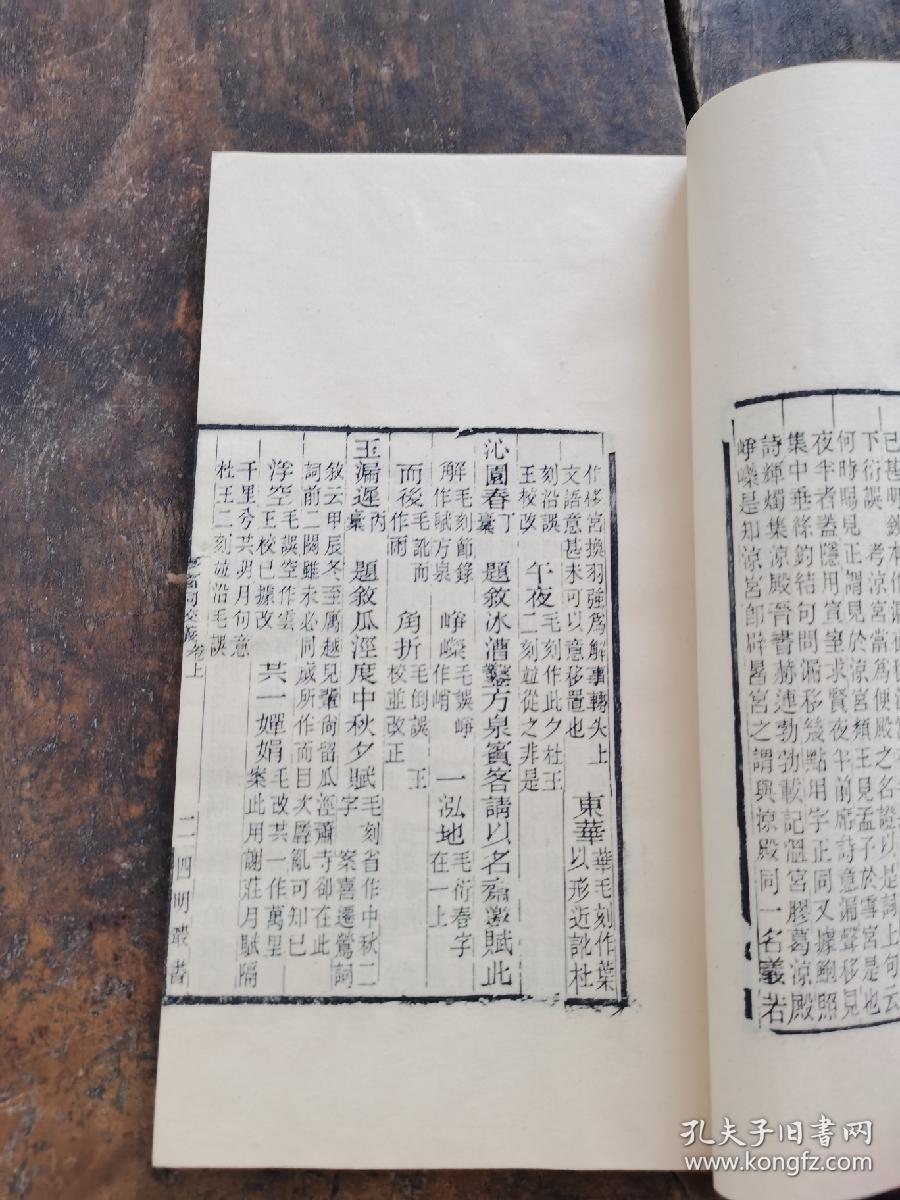 下衍誤考涼宮當為便殿之名證以是詞上句云
何時暍見正謂見於涼宮須王見孟子於雪宮是也
夜半者蓋隱用宣室求賢夜半前席詩意漏聲移見
集中垂絲釣結句問漏移幾點用字正同又據鮑照
詩輝燭集涼殿晉書赫連勃勃載記溫宮膠葛涼殿
崢嶸是知涼宮卽辟暑宮之謂與掠殿同一名義若
作侈宮換羽強為解事轉失上
文語意甚未可以意移置也
東華
華毛刻作葉
以形近訛杜
刻沿誤
王校改
午夜
毛刻作此夕杜王
二刻竝從之非是
沁園春
丁
稾
題敘冰漕鑿方泉賓客請以名齋邀賦此
解
毛刻節錄
作賦方泉
崢嶸
毛誤崢
作嶠
一泓地
毛衍春字
在一上
而後
毛訛而
作雨
角折
毛倒誤王
校並改正
玉漏遲
丙
稾
題敘瓜涇度中秋夕賦
毛刻省作中秋二
字案喜遷鶯詞
敘云甲辰冬至寓越兒輩尚留瓜涇蕭寺卻在此
詞前二闋雖未必同歲所作而目次羼亂可知已
浮空
毛誤空作雲
王校已據改
共一嬋娟
毛改共一作萬里
案此用謝莊月賦隔
千里兮共明月句意
杜王二刻竝沿毛誤
卷上
二
四明叢書
孔夫子旧書网
www.kongfz.com